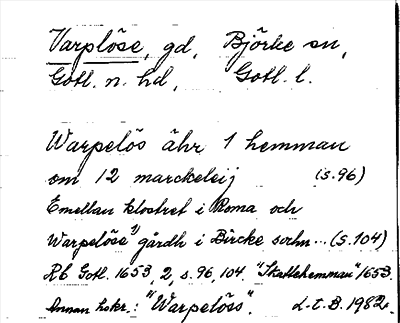 Varplöse, gd, Björke sn,
Gotl. n. hd, Gotl. l.
Warpelös ähr 1 hemman
om 12 marckeleij (s. 96)
Emellan klostret i Roma och
Warpelöse¹⁾ gårdh i Bircke sochn... (s. 104)
Rb Gotl. 1653, 2, s. 96, 104. "Skattehemman" 1653.
Annan hskr.: ¹⁾"Warpelöss". L.t.B. 1982.